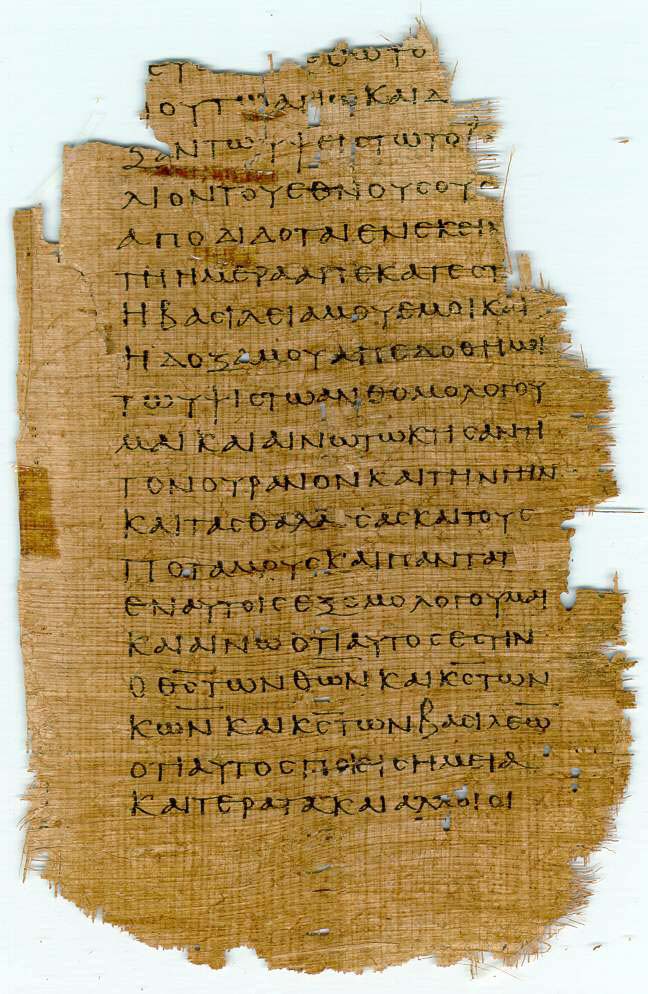 ΚΑΙΔ
ΞΑΝΤΩΥΨΕΙϹΤΩΤΟ
ΛΙΟΝΤΟΥΕΘΝΟΥϹϹΟΥ
ΑΠΟΔΙΔΟΤΑΙΕΝΕΚΕΙΝ
ΤΗΗΜΕΡΑΑΠΕΚΑΤΕϹΤ
ΗΒΑϹΙΛΕΙΑΜΟΥΕΜΟΙΚΑΙ
ΗΔΟΞΑΜΟΥΑΠΕΔΟΘΗΜΟΙ
ΤΩΥΨΙϹΤΩΑΝΘΟΜΟΛΟΓΟΥ
ΜΑΙΚΑΙΑΙΝΩΤΩΚΤΙϹΑΝΤΙ
ΤΟΝΟΥΡΑΝΟΝΚΑΙΤΗΝΓΗΝ
ΚΑΙΤΑϹΘΑΛΑϹϹΑϹΚΑΙΤΟΥϹ
ΠΟΤΑΜΟΥϹΚΑΙΠΑΝΤΑΤ
ΕΝΑΥΤΟΙϹΕΞΟΜΟΛΟΓΟΥΜΑΙ
ΚΑΙΑΙΝΩΟΤΙΑΥΤΟϹΕϹΤΙΝ
ΟΘ̅Ϲ̅ΤΩΝΘ̅Ω̅Ν̅ΚΑΙΚ̅Ϲ̅ΤΩΝ
Κ̅Ω̅Ν̅ΚΑΙΚ̅Ϲ̅ΤΩΝΒΑϹΙΛΕΩ̅
ΟΤΙΑΥΤΟϹΠΟΙΕΙϹΗΜΕΙΑ
ΚΑΙΤΕΡΑΤΑΚΑΙΑΛΛΟΙΟΙ